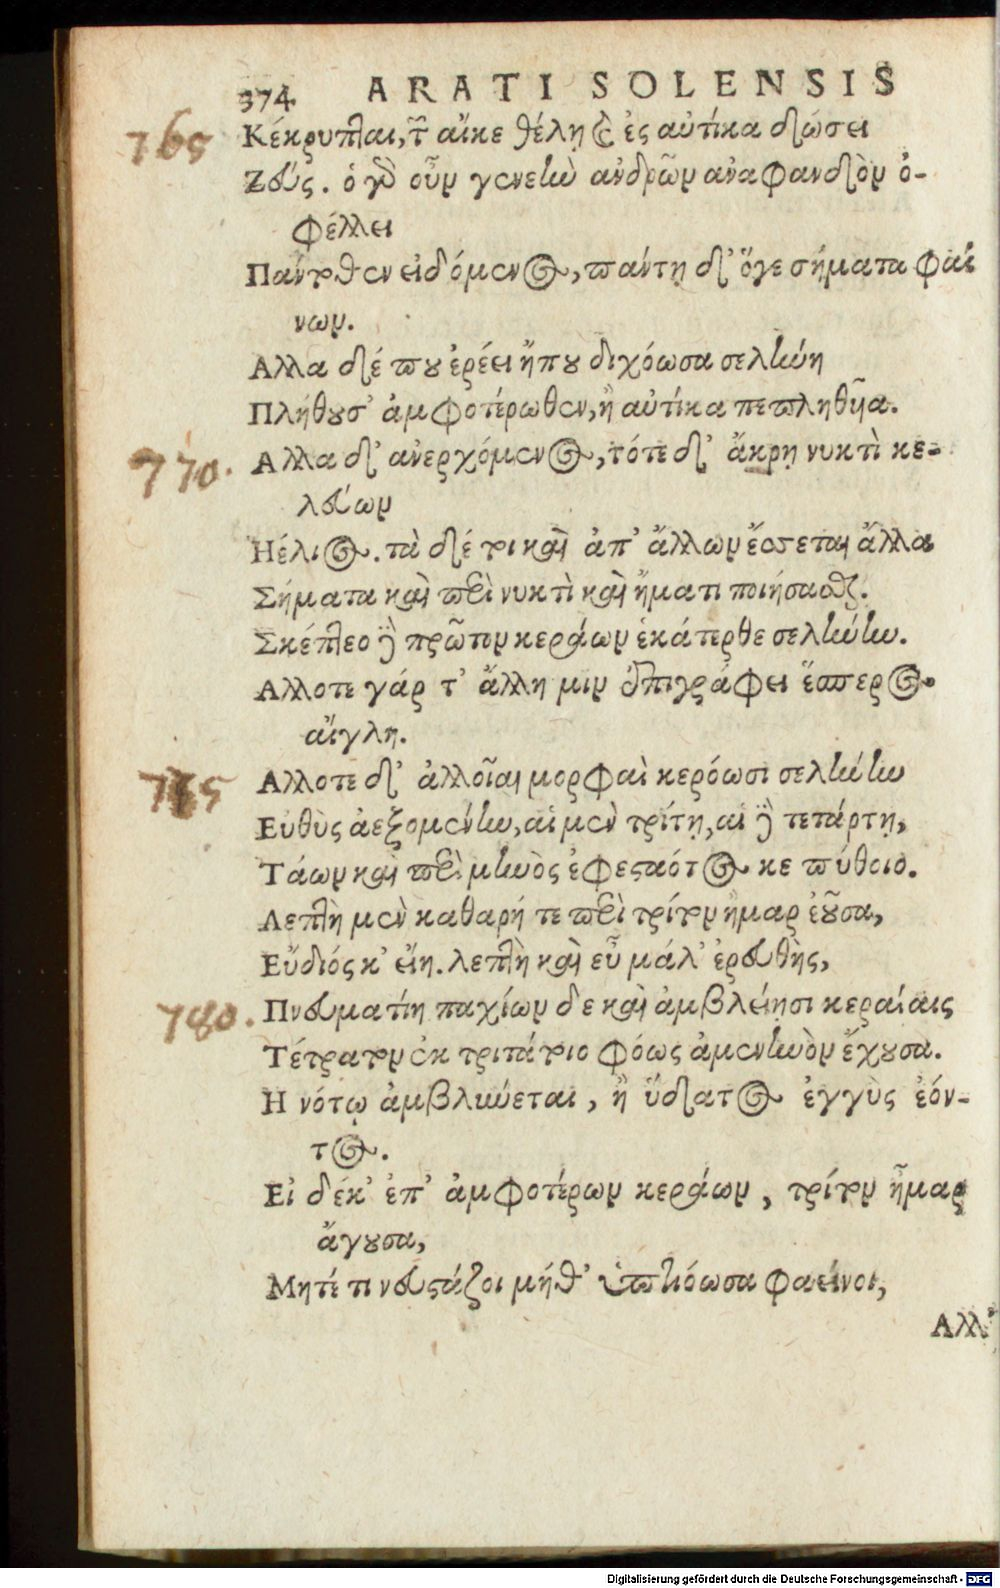 374 ARATI SOLENSIS
765 Κέκρυπται, τῶν αἴκε θέλῃ καὶ ἐς αὐτίκα δώσει
Ζεύς. ὁ γὰρ οὖν γενεὴν ἀνδρῶν ἀναφανδὸν ὀ-
φέλλει
Πάντοθεν εἰδόμενος, πάντη δ' ὅγε σήματα φαί
νων.
Αλλα δέ που ἐρέει ἤπου διχόωσα σελήνη
Πλήθουσ' ἀμφοτέρωθεν, ἢ αὐτίκα πεπληθῆα.
770. Αλλα δ' ἀνερχόμενος, τότε δ' ἄκρῃ νυκτὶ κε-
λεύων
Ηέλιος. τὰ δέ τοι καὶ ἀπ' ἄλλων ἔσσεται ἄλλα
Σήματα καὶ περὶ νυκτὶ καὶ ἤματι ποιήσασθαι.
Σκέπτεο δὲ πρῶτον κεράων ἑκάτερθε σελήνην.
Αλλοτε γάρ τ' ἄλλη μιν ἐπιγράφει ἕσπερος
αἴγλη.
775 Αλλοτε δ' ἀλλοῖαι μορφαὶ κερόωσι σελήνην
Εὐθὺς ἀεξομένην, αἱ μὲν τρίτῃ, αἱ δὲ τετάρτῃ,
Τάων καὶ περὶ μηνὸς ἐφεσταότος κε πύθοιο.
Λεπτὴ μὲν καθαρή τε περὶ τρίτον ἦμαρ ἐοῦσα,
Εὔδιός κ' εἴη. λεπτὴ καὶ εὖ μάλ' ἐρευθὴς,
780. Πνευματίη παχίων δε καὶ ἀμβλείῃσι κεραίαις
Τέτρατον ἐκ τριτάτοιο φόως ἀμενηνὸν ἔχουσα.
Η νότῳ ἀμβλύεται, ἢ ὕδατος ἐγγὺς ἐόν-
τος.
Εἰ δέκ' ἐπ' ἀμφοτέρων κεράων, τρίτον ἦμαρ
ἄγουσα,
Μητέ τι νευστάζοι μήθ' ὑπτιόωσα φαείνοι,
Αλλ'
Digitalisierung gefördert durch die Deutsche Forschungsgemeinschaft - DFG